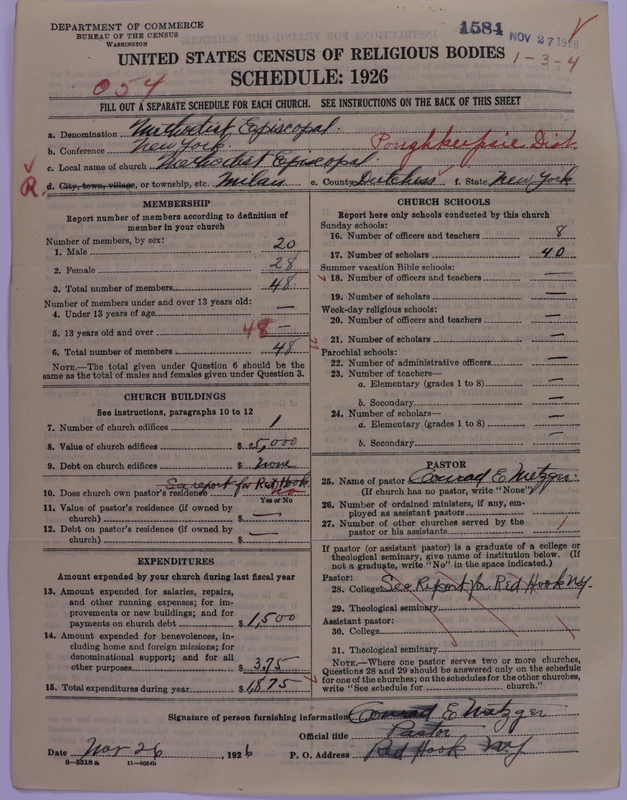 DEPARTMENT OF COMMERCE
BUREAU OF THE CENSUS
WASHINGTON
1584 NOV 27 1926
UNITED STATES CENSUS OF RELIGIOUS BODIES
1-3-4
SCHEDULE: 1926
054
FILL OUT A SEPARATE SCHEDULE FOR EACH CHURCH. SEE INSTRUCTIONS ON THE BACK OF THIS SHEET
a. Denomination Methodist Episcopal.
b. Conference New York. Poughkeepsie Dist.
c. Local name of church Methodist Episcopal
R. d. City, town, village, or township, etc. Milan e. County Dutchess f. State New York
MEMBERSHIP
Report number of members according to definition of
member in your church
Number of members, by sex:
1. Male 20
2. Female 28
3. Total number of members 48
Number of members under and over 13 years old:
4. Under 13 years of age —
5. 13 years old and over 48 —
6. Total number of members 48
NOTE.—The total given under Question 6 should be
same as the total of males and females given under Question 3.
CHURCH BUILDINGS
See instructions, paragraphs 10 to 12
7. Number of church edifices 1
8. Value of church edifices $ 5,000
9. Debt on church edifices $ None
See report for Red Hook
10. Does church own pastor's residence No
Yes or No
11. Value of pastor's residence (if owned by
church) $ —
12. Debt on pastor's residence (if owned by
church) $ —
EXPENDITURES
Amount expended by your church during last fiscal year
13. Amount expended for salaries, repairs,
and other running expenses; for im-
provements or new buildings; and for
payments on church debt $ 1,500
14. Amount expended for benevolences, in-
cluding home and foreign missions; for
denominational support; and for all
other purposes $ 375
15. Total expenditures during year $ 1,875
CHURCH SCHOOLS
Report here only schools conducted by this church
Sunday schools:
16. Number of officers and teachers 8
17. Number of scholars 40
Summer vacation Bible schools:
18. Number of officers and teachers —
19. Number of scholars —
Week-day religious schools:
20. Number of officers and teachers —
21. Number of scholars —
Parochial schools:
22. Number of administrative officers —
23. Number of teachers—
a. Elementary (grades 1 to 8) —
b. Secondary —
24. Number of scholars—
a. Elementary (grades 1 to 8) —
b. Secondary —
PASTOR
25. Name of pastor Conrad E Metzger
(If church has no pastor, write "None")
26. Number of ordained ministers, if any, em-
ployed as assistant pastors
27. Number of other churches served by the
pastor or his assistants 1
If pastor (or assistant pastor) is a graduate of a college or
theological seminary, give name of institution below. (If
not a graduate, write "No" in the space indicated.)
Pastor:
28. College See Report for Red Hook NY.
29. Theological seminary
Assistant pastor:
30. College
31. Theological seminary
NOTE.—Where one pastor serves two or more churches,
Questions 28 and 29 should be answered only on the schedule
for one of the churches; on the schedules for the other churches,
write "See schedule for church."
Signature of person furnishing information Conrad E Metzger
Official title Pastor
Date Nov 26, 1926 P. O. Address Red Hook NY
8—5318a 11—9054b